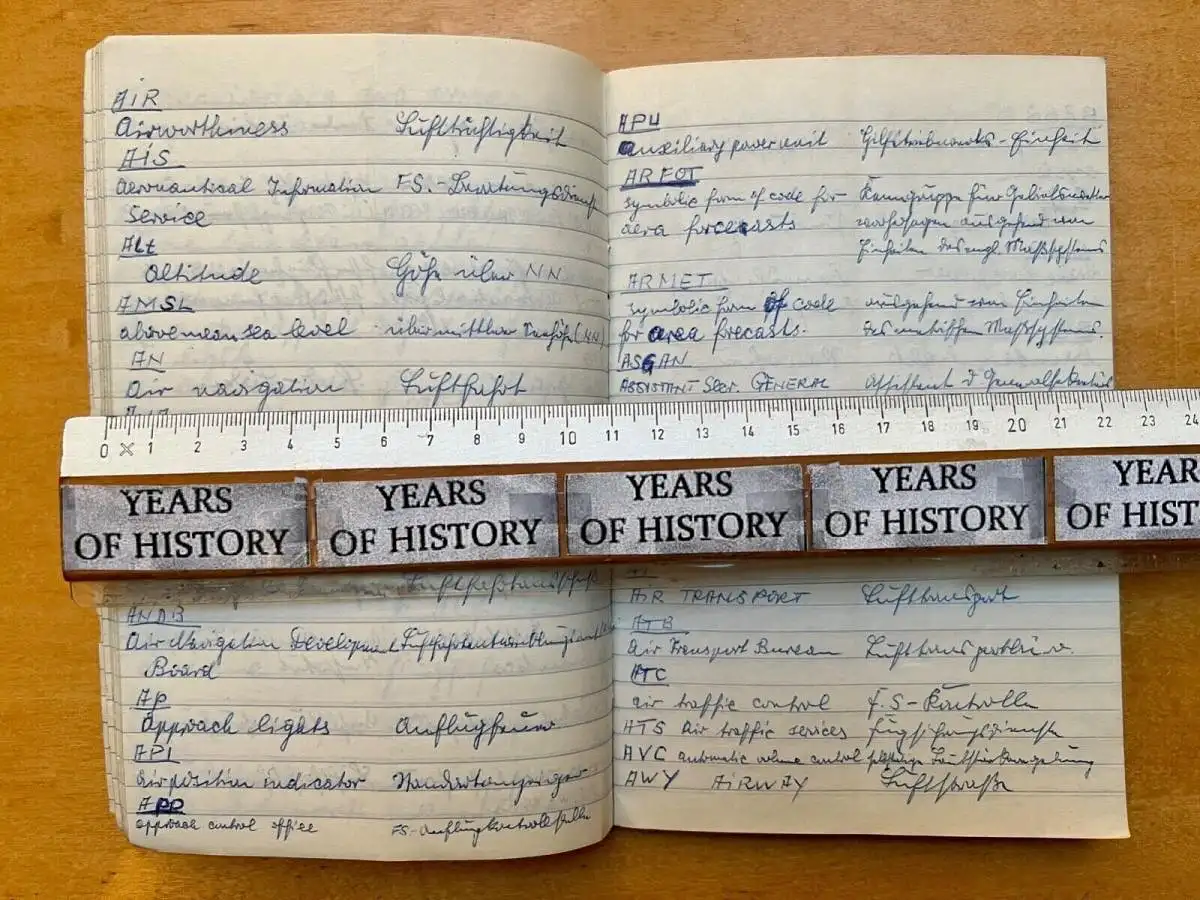 AIR
Airworthiness Lufttüchtigkeit
AIS
Aeronautical Information FS.-Beratungsdienst
Service
ALt
Altitude Höhe über NN
AMSL
above mean sea level über mittlerer Seehöhe (NN)
AN
Air navigation Luftfahrt
ANDB
Air Navigation Development
Board
Ap
Approach lights Anflugfeuer
API
air position indicator Standortanzeiger
App
approach control office FS-Anflugkontrollstelle
APU
auxiliary power unit Hilfstriebwerks-Einheit
ARFOT
symbolic form of code for Kenngruppe für Gebietswetter
aera forecasts vorhersagen ausgehend von
Einheiten des engl. Maßsystems
ARMET
symbolic form of code ausgehend von Einheiten
for area forecasts. des metrischen Maßsystems.
ASGAN
ASSISTANT Secr. GENERAL Assistent d Generalsekretärs
0 1 2 3 4 5 6 7 8 9 10 11 12 13 14 15 16 17 18 19 20 21 22 23 24
YEARS OF HISTORY YEARS OF HISTORY YEARS OF HISTORY YEARS OF HISTORY YEAR OF HIST
AIR TRANSPORT Lufttransport
ATB
Air Transport Bureau Lufttransportbüro
ATC
air traffic control F.S-Kontrolle
ATS Air traffic services Flugsicherungsdienste
AVC automatic volume control
AWY AIRWAY Luftstraße